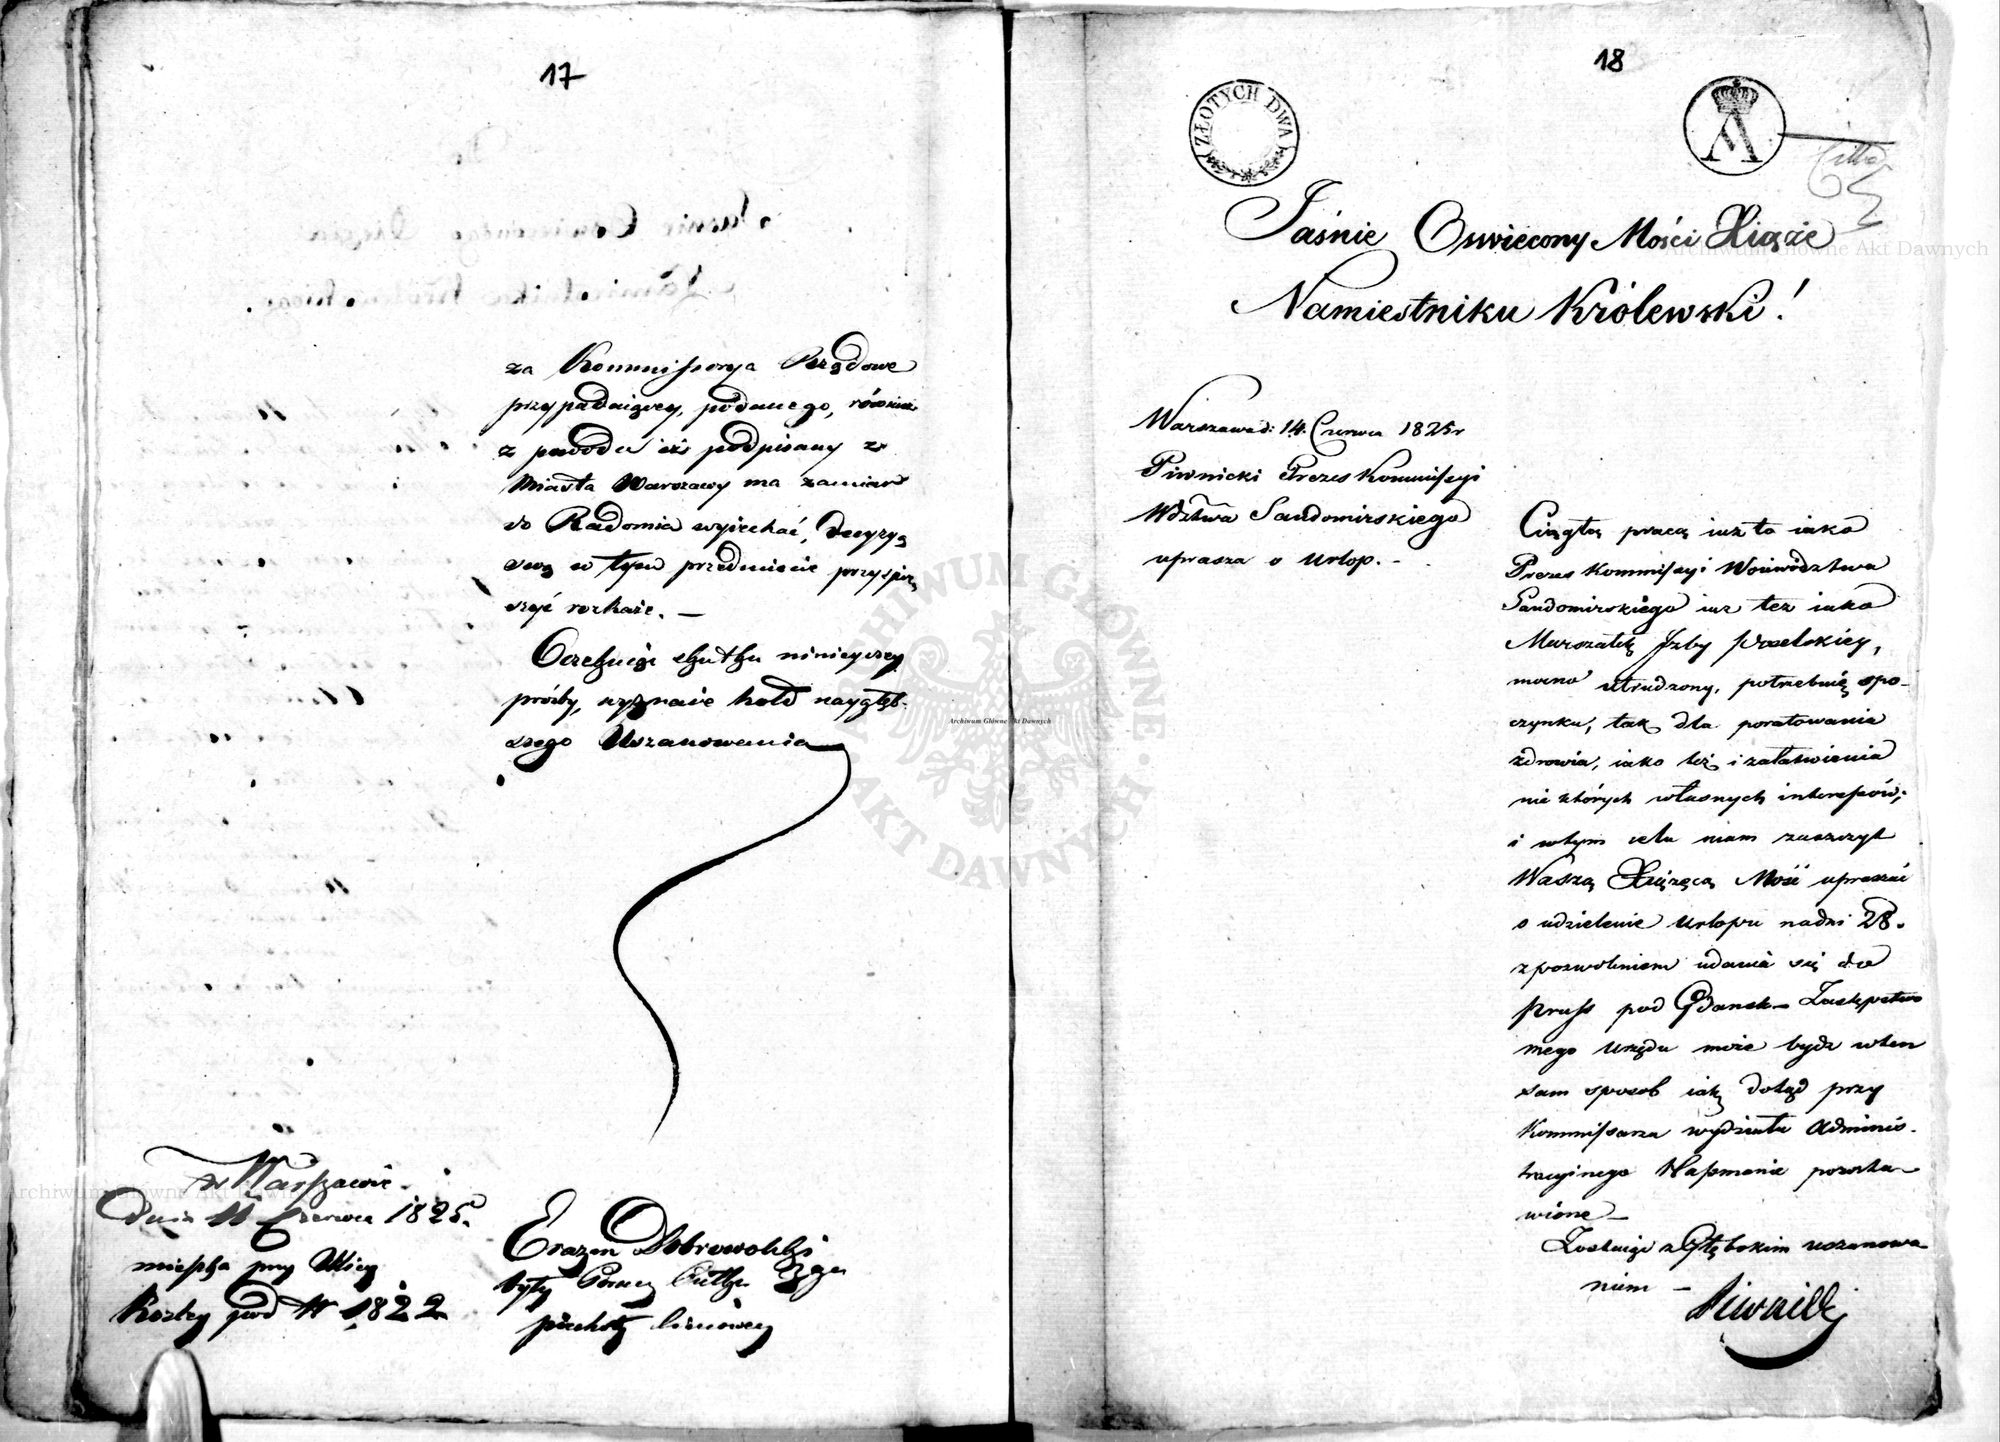 17
za Kommissorya Rządowe
przypadaiącey, podanego, również
z powodu iż podpisany z
Miasta Warszawy ma zamiar
do Radomia wyiechać, decyzyą
swą w tym przedmiocie przyspie
szyć rozkaże. —
Oczekuiąc skutku ninieyszey
prośby, wyznaie hołd naygłęb-
szego Uszanowania
w Warszawie
dnia 11 Czerwca 1825.
mieszka przy Ulicy
Koziey pod N 1822
Erazm Dobrowolski
były Porucz Pułku 3go
piechoty liniowey
18
ZŁOTYCH DWA
Jaśnie Oswiecony Mości Xiąże
Namiestniku Królewski!
Warszawa d: 14. Czerwca 1825 r
Piwnicki Prezes Kommissyi
Wdztwa Sandomirskiego
uprasza o Urlop. -
Ciągłą pracą iuż to iako
Prezes Kommissyi Woiewództwa
Sandomirskiego iuż też iako
Marszałek Jzby Poselskiey,
mocno utrudzony, potrzebuię spo-
czynku, tak dla poratowania
zdrowia, iako też i załatwienia
nie których własnych interessów;
i w tym celu mam zaszczyt
Waszą Xiążęcą Mość upraszać
o udzielenie Urlopu na dni 28.
z pozwoleniem udania się do
Pruss pod Gdansk — Zastępstwo
mego Urzędu może bydź w ten
sam sposob iak dotąd przy
Kommissarza wydziału Adminis-
tracyinego Hassmanie pozosta-
wione —
Zostaię z Głębokim uszanowa-
niem —
Piwnicki
Archiwum Główne Akt Dawnych